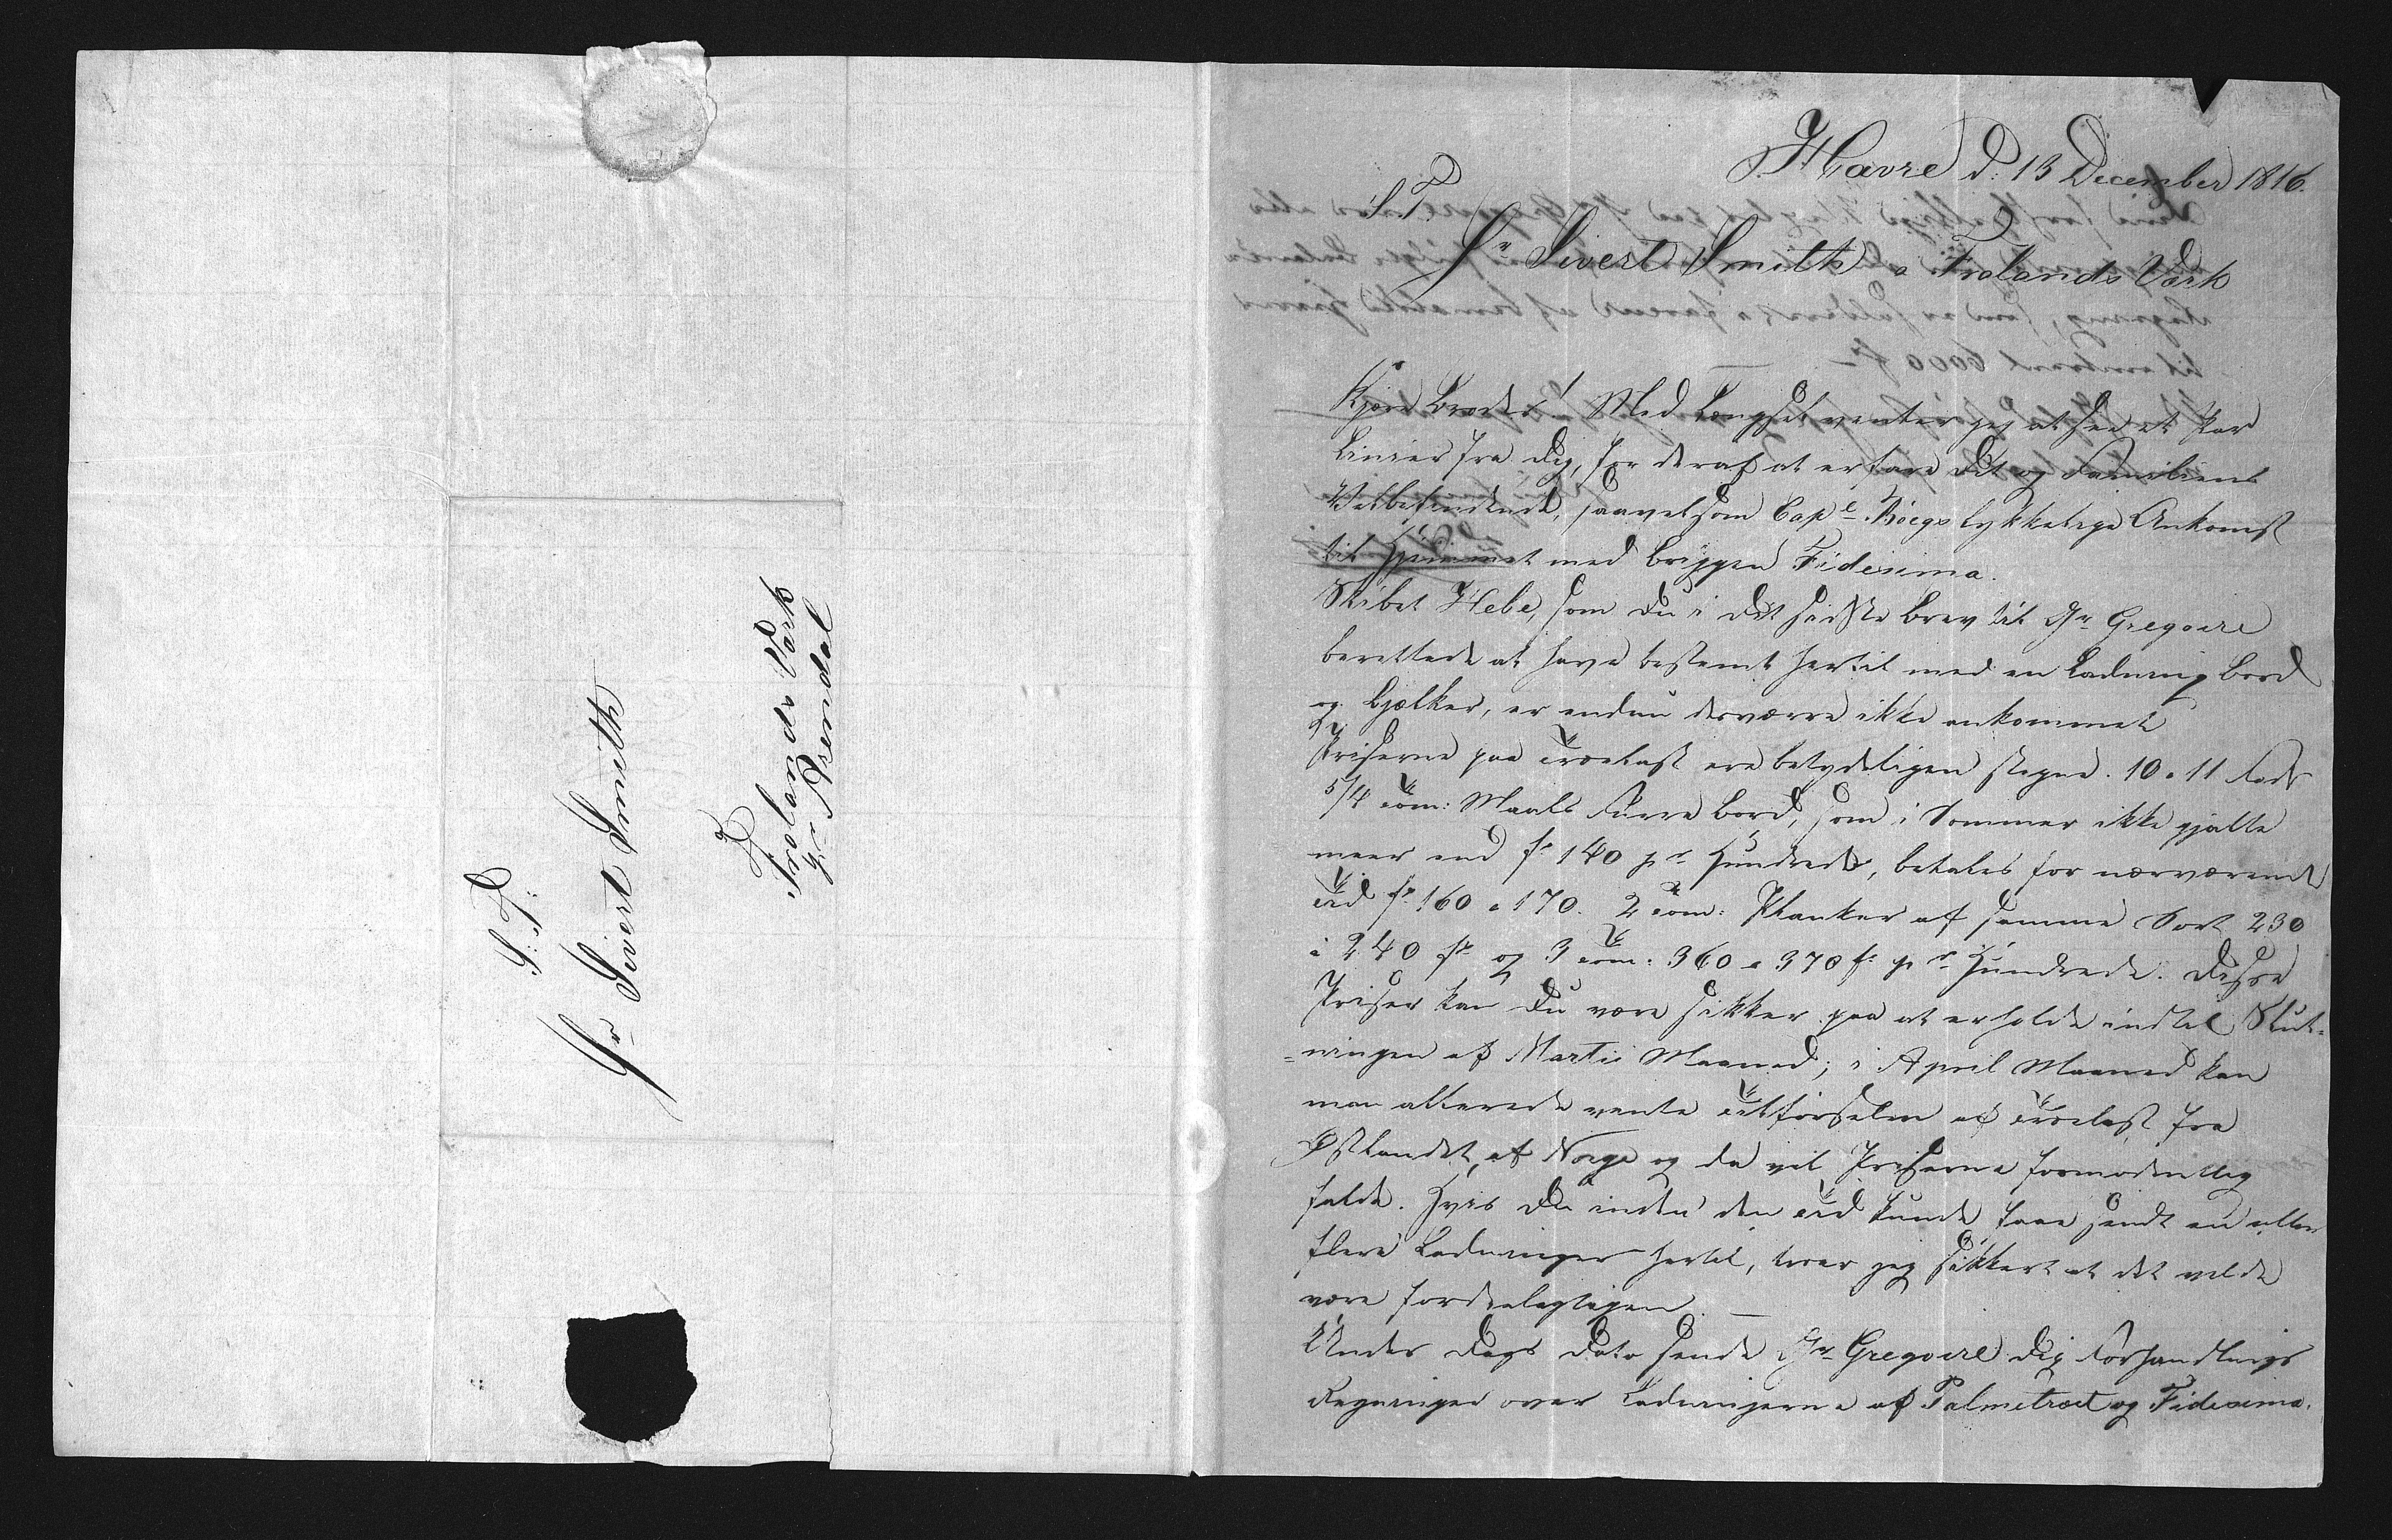 S: T:
Hr Sivert Smith
Frolands Værk
pr Arendal
Havre d: 13 December 1816.
S. T.
Hr Sivert Smith a Frolands Værk
Kjære Broder! Med Længsel venter jeg at see et Par
Linier fra Dig, for deraf at erfare Dit og Familiens
Velbefindende, saavelsom Capt Boegs lykkelige Ankomst
til Hjemmet med Briggen Fidesima.
Skibet Hebe, som Du i Dit sidste Brev til Hr Gregoire
berettede at have bestemt hertil med en Ladning Bord
og Bjelker, er endnu desværre ikke ankommet
Priserne paa Trælast ere betydeligen stegne. 10 a 11 Fods
5/4 Tom: Maals Furre Bord, som i Sommer ikke gjalte
meer end fr 140 pr Hundrede, betales for nærværende
Tid fr 160 a 170. 2 Tom: Planker af samme Sort 230
a 240 fr og 3 Tom: 360 a 370 fr pr Hundrede. Disse
Priser kan Du være sikker paa at erholde indtil Slut-
-ningen af Martii Maaned; i April Maaned kan
man allerede vente Tilførselen af Trælast fra
Østlandet af Norge og da vil Priserne formodentlig
falde. Hvis Du inden den Tid kunde faae sendt en eller
flere Ladninger hertil, troer jeg sikkert at det vilde
være fordeelagtigen. —
Under Dags Dato sende Hr Gregoire Dig Forhandlings
Regninger over Ladningerne af Palmetræet og Fidesima.